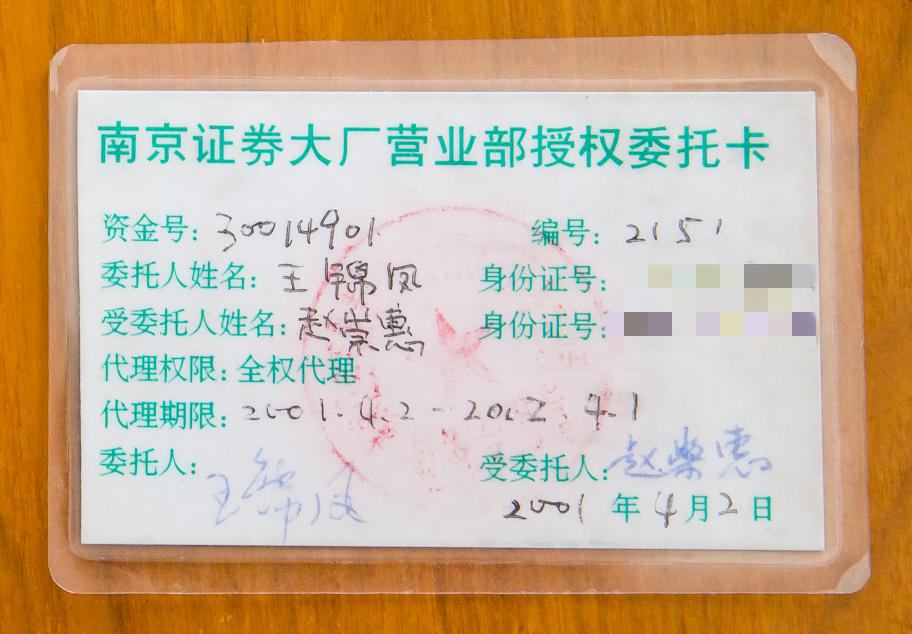 南京证券大厂营业部授权委托卡
资金号：30014901 编号：2151
委托人姓名：王锦凤 身份证号：
受委托人姓名：赵崇惠 身份证号：
代理权限：全权代理
代理期限：2001.4.2-2002.4.1
委托人：王锦凤 受委托人：赵崇惠
2001年4月2日